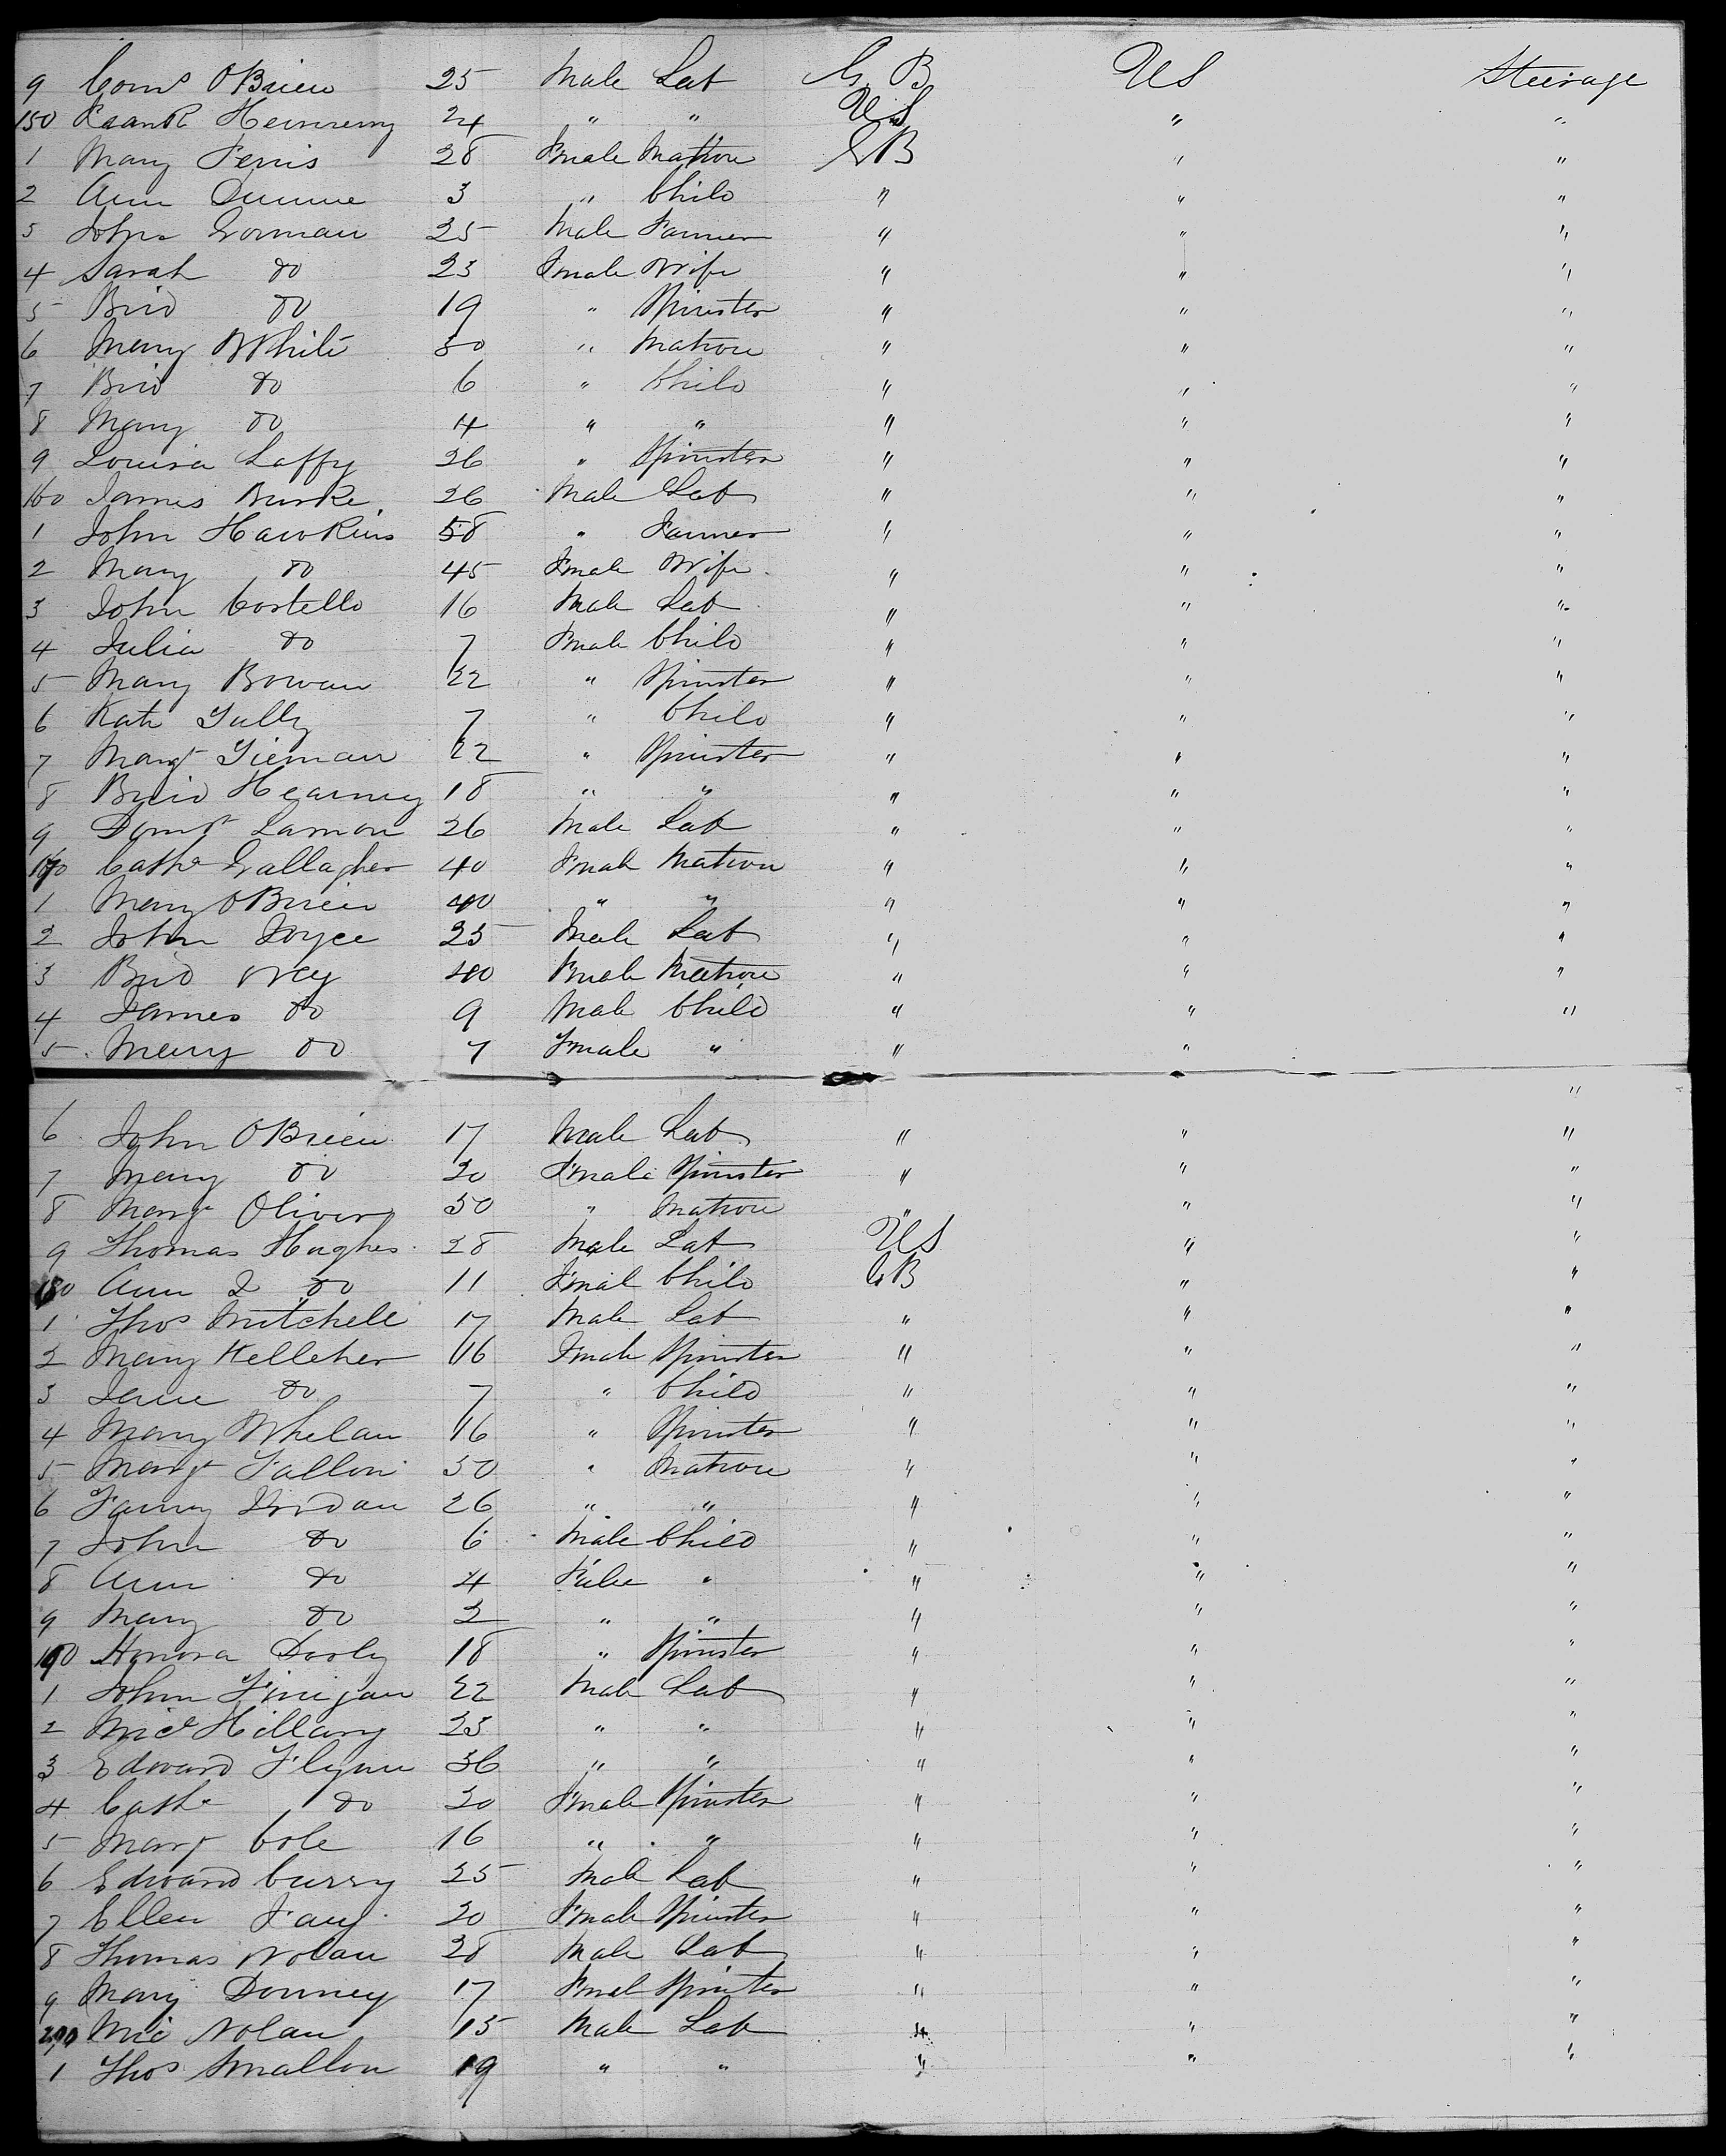 9 Corns OBrien 25 Male Lab G. B US Steerage
150 Frank Hennessy 24 " " US " "
1 Mary Ferris 28 Fmale Matron GB " "
2 Ann Dunne 3 " Child " " "
3 John Gorman 25 Male Farmer " " "
4 Sarah do 23 Fmale Wife " " "
5 Brid do 19 " Spinster " " "
6 Mary White 30 " Matron " " "
7 Brid do 6 " Child " " "
8 Mary do 4 " " " " "
9 Louisa Laffy 26 " Spinster " " "
160 James Burke 26 Male Lab " " "
1 John Hawkins 58 " Farmer " " "
2 Mary do 45 Fmale Wife " " "
3 John Costello 16 Male Lab " " "
4 Julia do 7 Fmale Child " " "
5 Mary Bowan 22 " Spinster " " "
6 Kate Tully 7 " Child " " "
7 Margt Tiernan 22 " Spinster " " "
8 Brid Hearney 18 " " " " "
9 Domk Lamon 26 Male Lab " " "
170 Cathe Gallagher 40 Fmale Matron " " "
1 Mary OBrien 40 " " " " "
2 John Joyce 25 Male Lab " " "
3 Brid Wey 40 Fmale Matron " " "
4 James do 9 Male Child " " "
5 Mary do 7 Fmale " " " "
"
6 John OBrien 17 Male Lab " " "
7 Mary do 20 Fmale Spinster " " "
8 Margt Oliver 50 " Matron " " "
9 Thomas Hughes 28 Male Lab US " "
180 Ann J do 11 Fmal Child GB " "
1 Thos Mitchell 17 Male Lab " " "
2 Mary Kelleher 16 Fmale Spinster " " "
3 Jane do 7 " Child " " "
4 Mary Whelan 16 " Spinster " " "
5 Margt Fallon 50 " Matron " " "
6 Fanny Jordan 26 " " " " "
7 John do 6 Male Child " " "
8 Ann do 4 " " " "
9 Mary do 2 " " " " "
190 Honora Dooly 18 " Spinster " " "
1 John Finigan 22 Male Lab " " "
2 Micl Hillary 23 " " " " "
3 Edward Flynn 36 " " " " "
4 Cathe do 20 Fmale Spinster " " "
5 Margt Cole 16 " " " " "
6 Edward Curry 25 Male Lab " " "
7 Ellen Fay 20 Fmale Spinster " " "
8 Thomas Nolan 28 Male Lab " " "
9 Mary Downey 17 Fmal Spinster " " "
200 Mic Nolan 15 Male Lab " " "
1 Thos Smallon 19 " " " " "